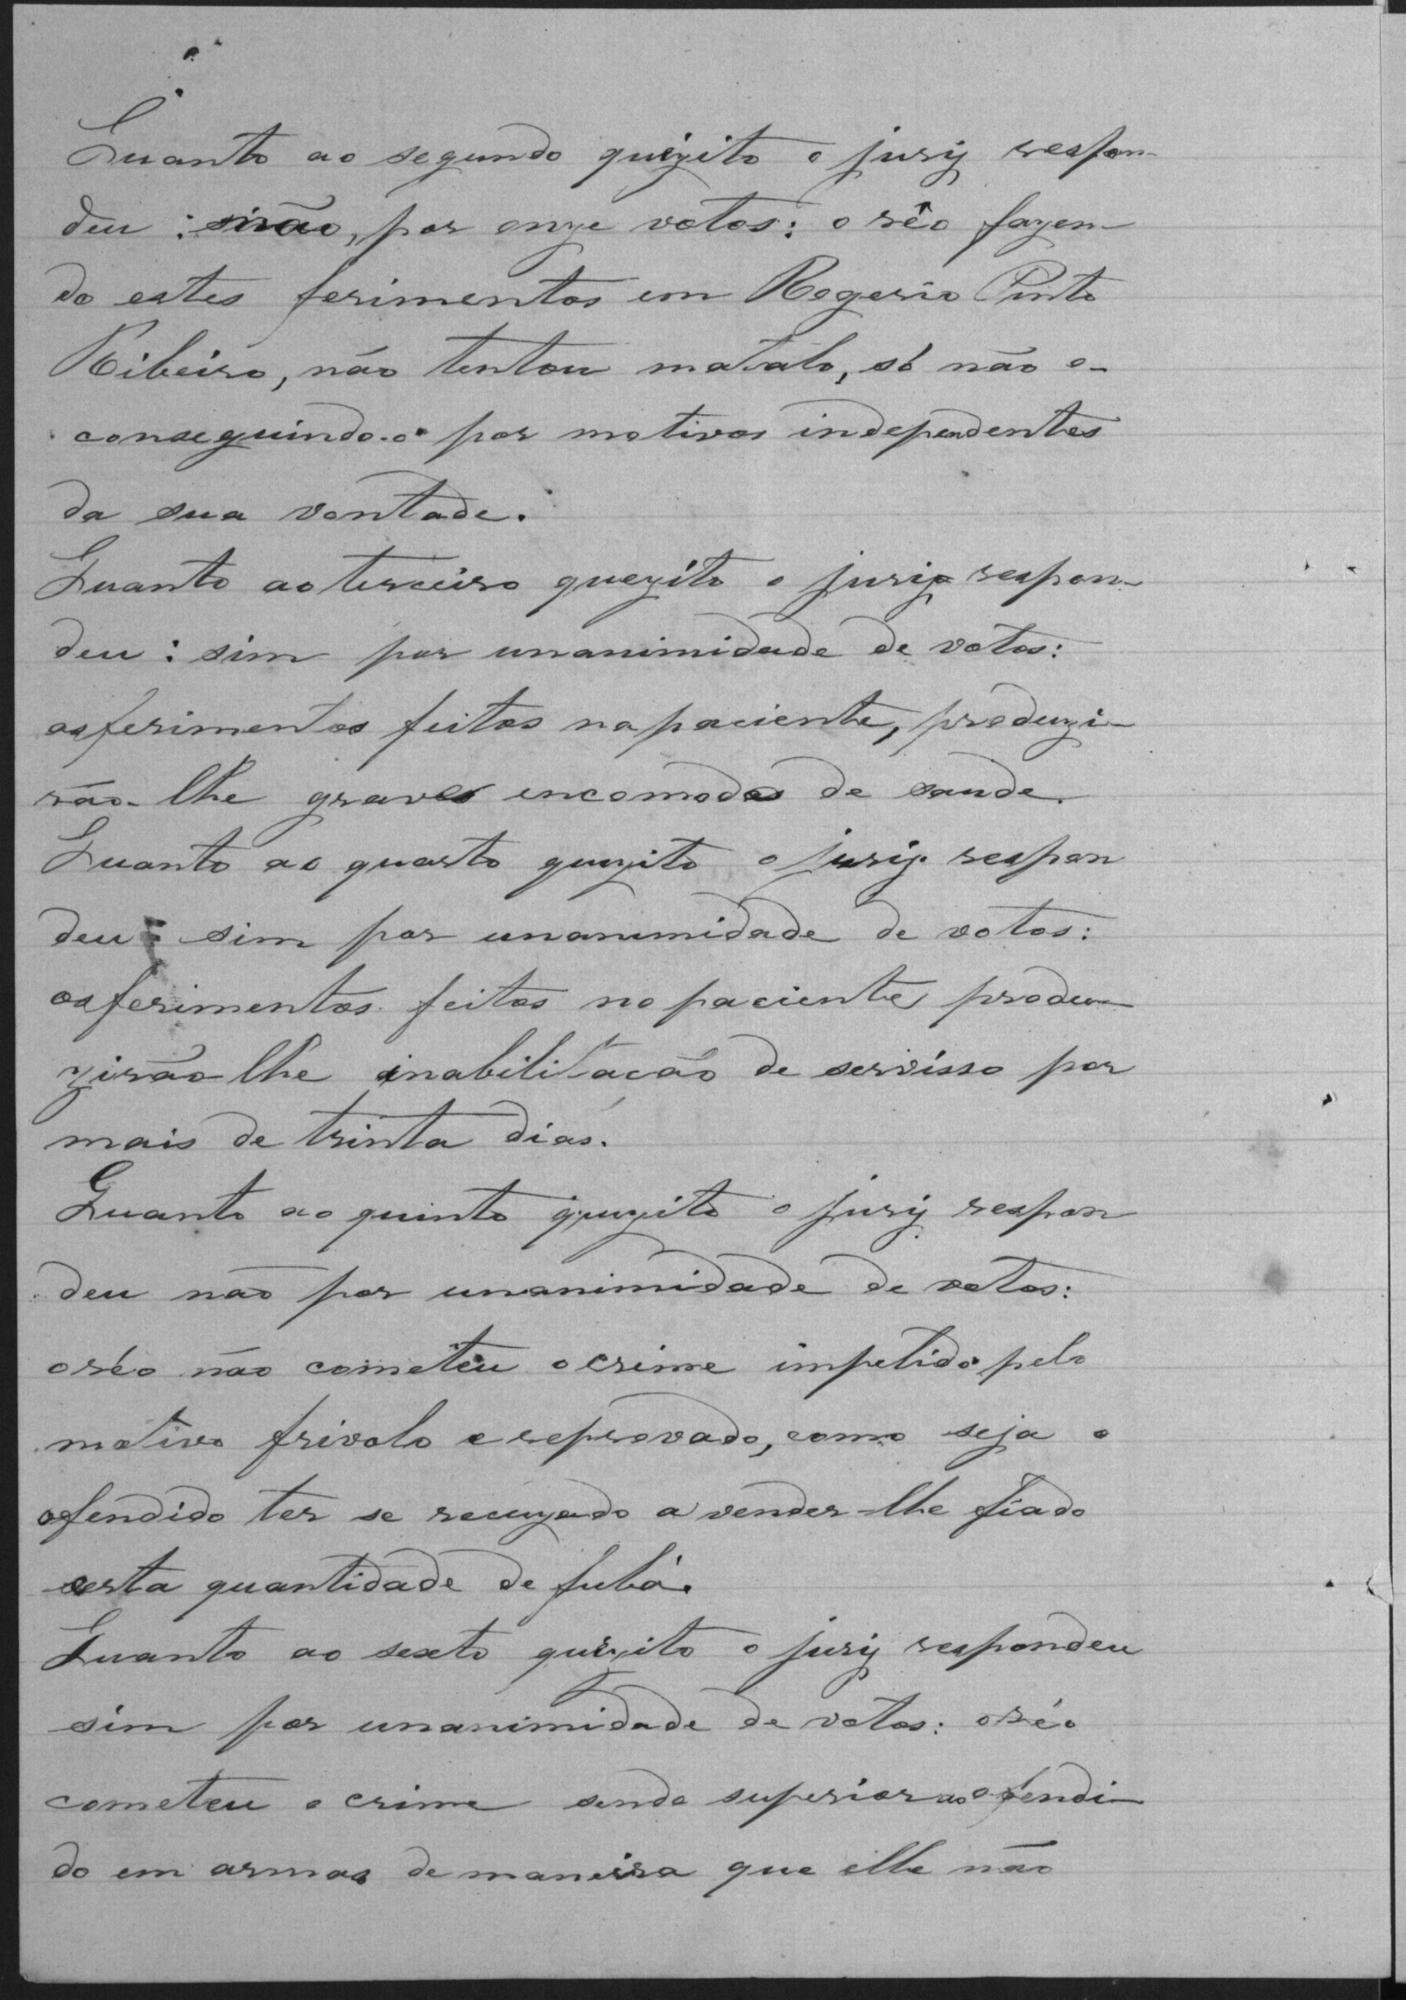 Quanto ao segundo quizito o jury respon-
deu: não, por onze votos: o rêo fazen-
do estes ferimentos em Rogerio Pinto
Ribeiro, não tentou matalo, só não o-
conseguindo-o por motivos independentes
da sua vontade.
Quanto ao terceiro quezito o jury respon-
deu: sim por unanimidade de votos:
os ferimentos feitos no paciente, produzi-
rão-lhe graves encomodos de saude.
Quanto ao quarto quezito o jury respon
deu: sim por unanimidade de votos:
os ferimentos feitos no paciente produ-
zirão lhe inabilitacão de servisso por
mais de trinta dias.
Quanto ao quinto quezito o jury respon
deu não por unanimidade de votos:
o réo não cometeu o crime impelido pelo
motivo frivolo e reprovado, como seja o
ofendido ter se recuzado a vender-lhe fiado
certa quantidade de fubá.
Quanto ao sexto quizito o jury respondeu
sim por unanimidade de votos: o réo
cometeu o crime sendo superior ao ofendi-
do em armas de maneira que elle não